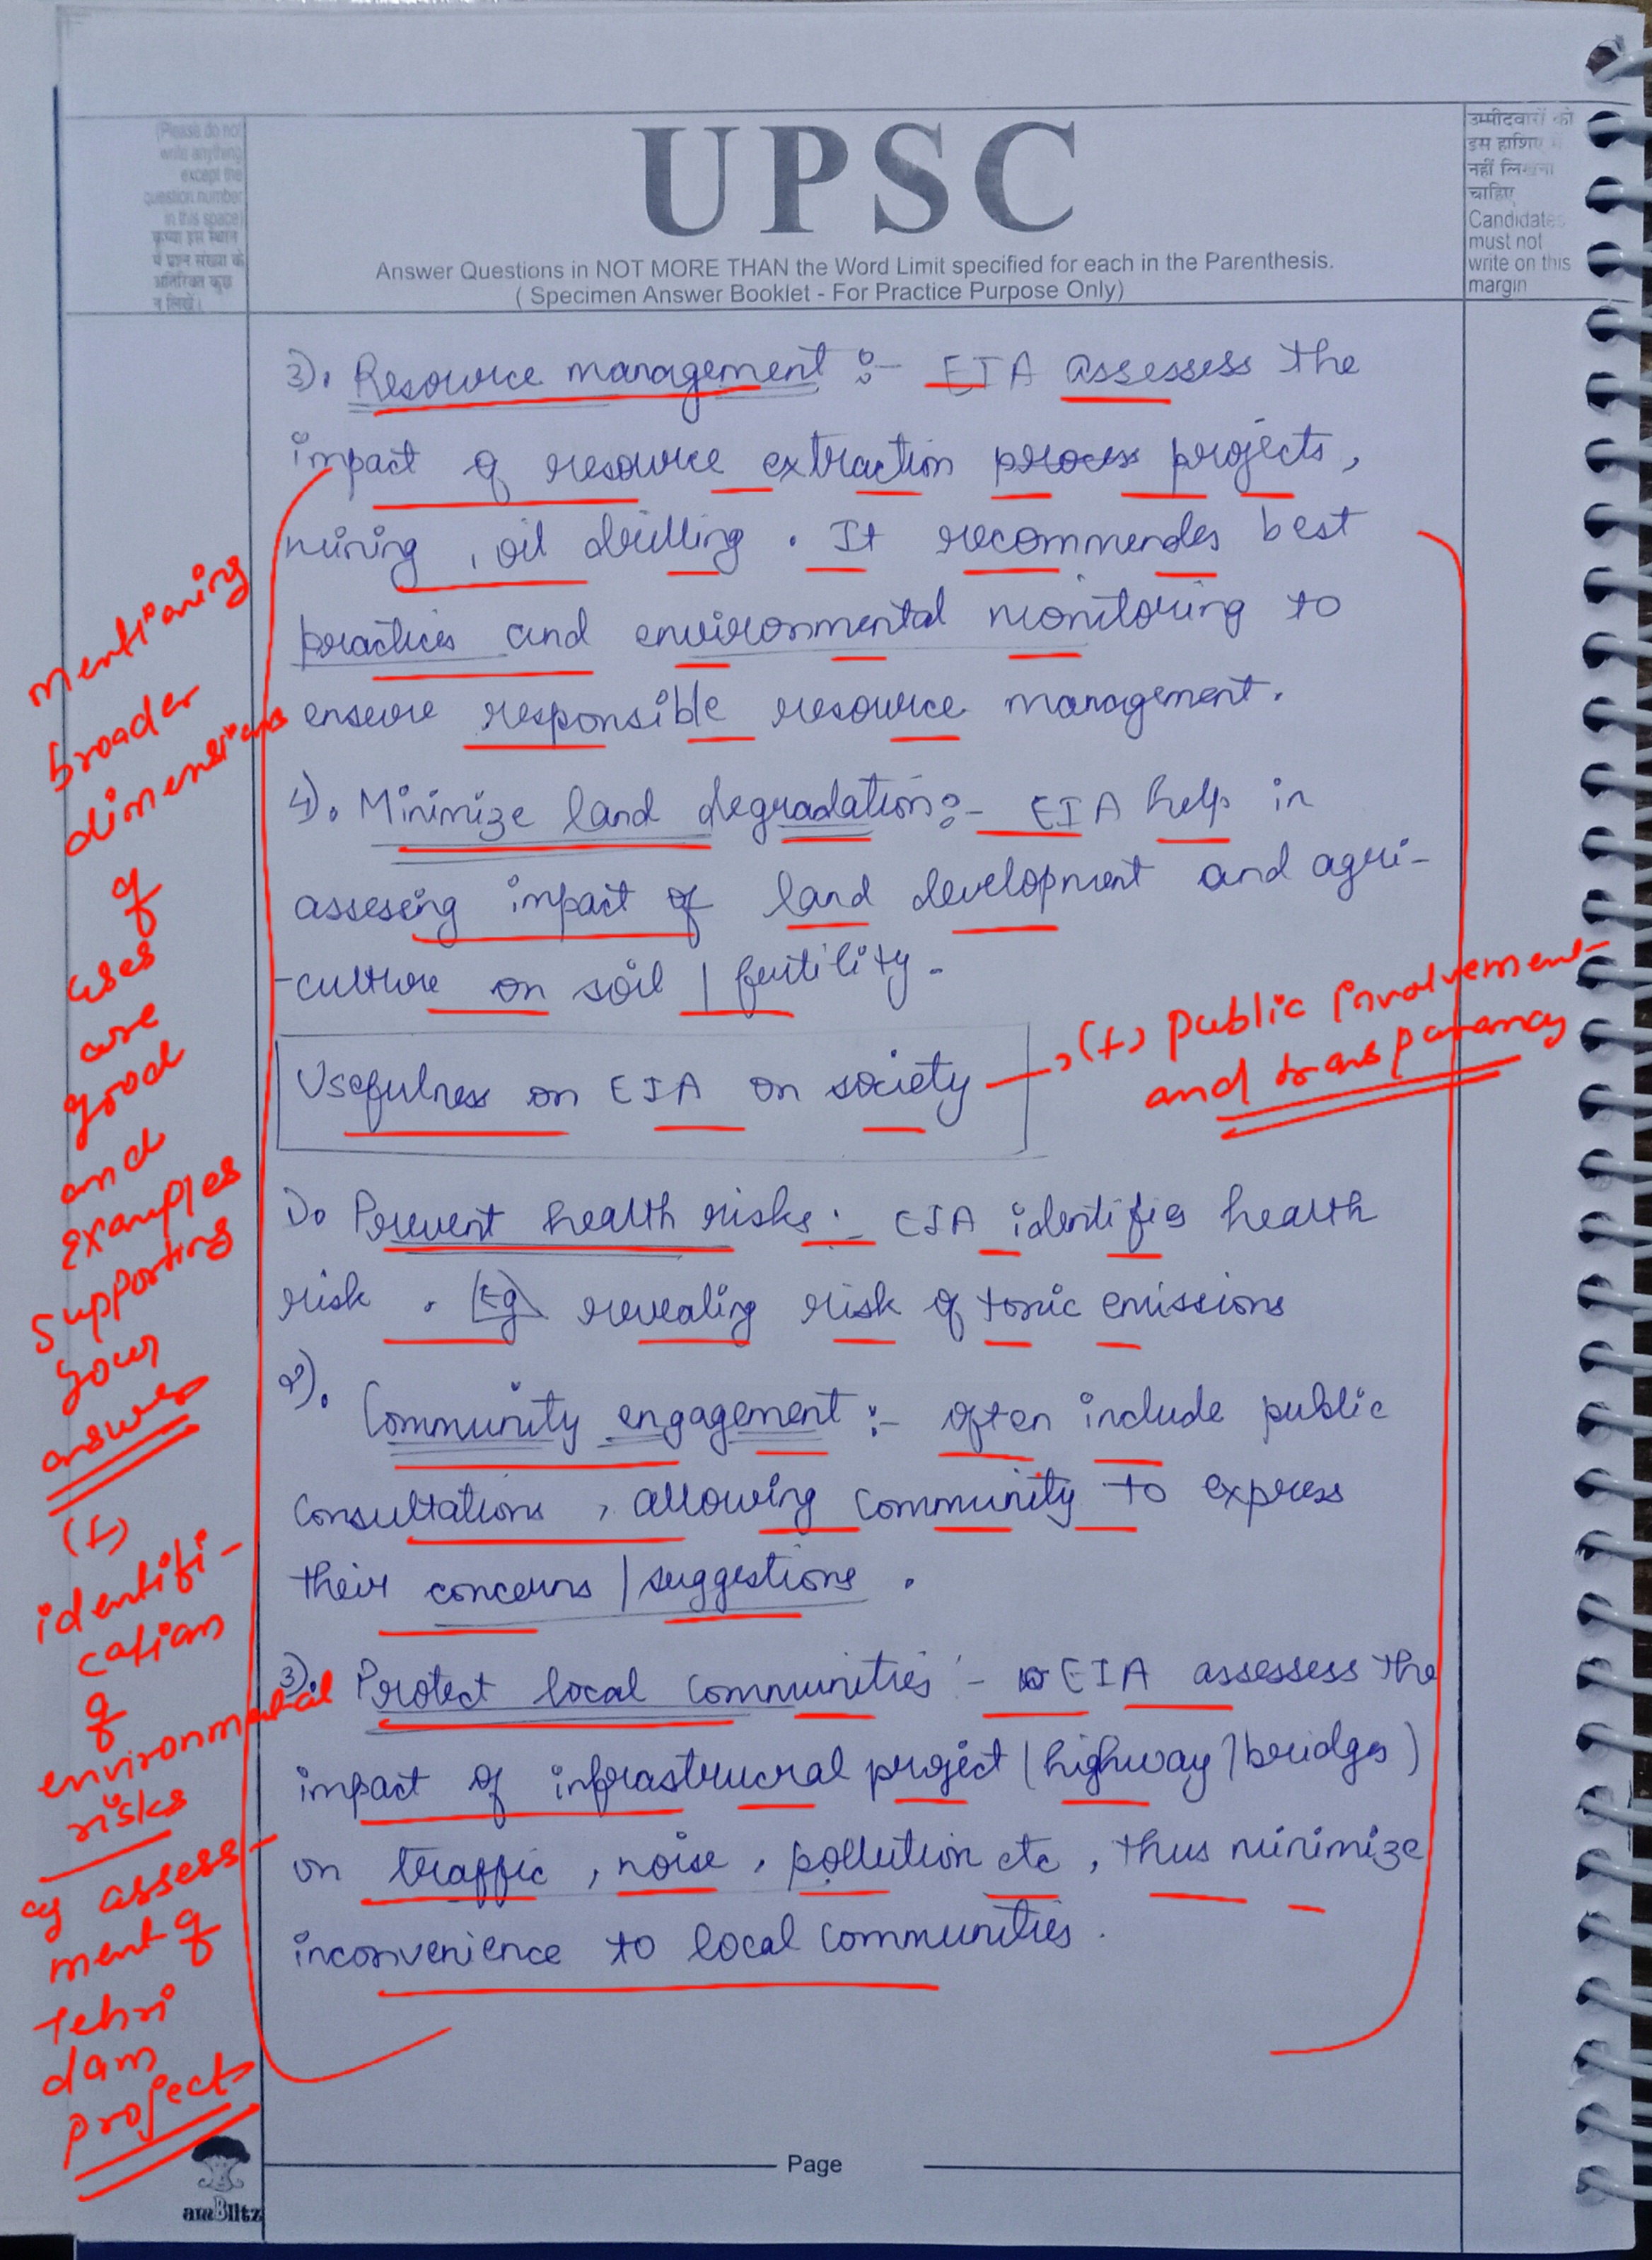 (Please do not
write anything
except the
question number
in this space)
कृपया इस स्थान
में प्रश्न संख्या के
अतिरिक्त कुछ
न लिखें।
UPSC
Answer Questions in NOT MORE THAN the Word Limit specified for each in the Parenthesis.
( Specimen Answer Booklet - For Practice Purpose Only)
उम्मीदवारों को
इस हाशिए में
नहीं लिखना
चाहिए
Candidates
must not
write on this
margin
3). Resource management :- EIA assessess the
impact of resource extraction process projects,
mining, oil drilling. It recommendes best
practices and environmental monitoring to
ensure responsible resource management.
4). Minimize land degradation:- EIA help in
assesing impact of land development and agri-
-culture on soil / fertility.
Usefulness on EIA on society
→ (+) public involvement
and transparency
1). Prevent health risks:- EIA identifies health
risk. Eg revealing risk of toxic emissions
2). Community engagement :- often include public
consultations, allowing community to express
their concerns / suggestions.
3). Protect local communities :- EIA assessess the
impact of infrastrucral project (highway/bridges)
on traffic, noise, pollution etc, thus minimize
inconvenience to local communities.
mentioning
broader
dimensions
of
uses
are
good
and
examples
supporting
your
answer
(+)
identifi-
cation
of
environmental
risks
eg assess-
ment of
Tehri
dam
project
Page
amBlitz